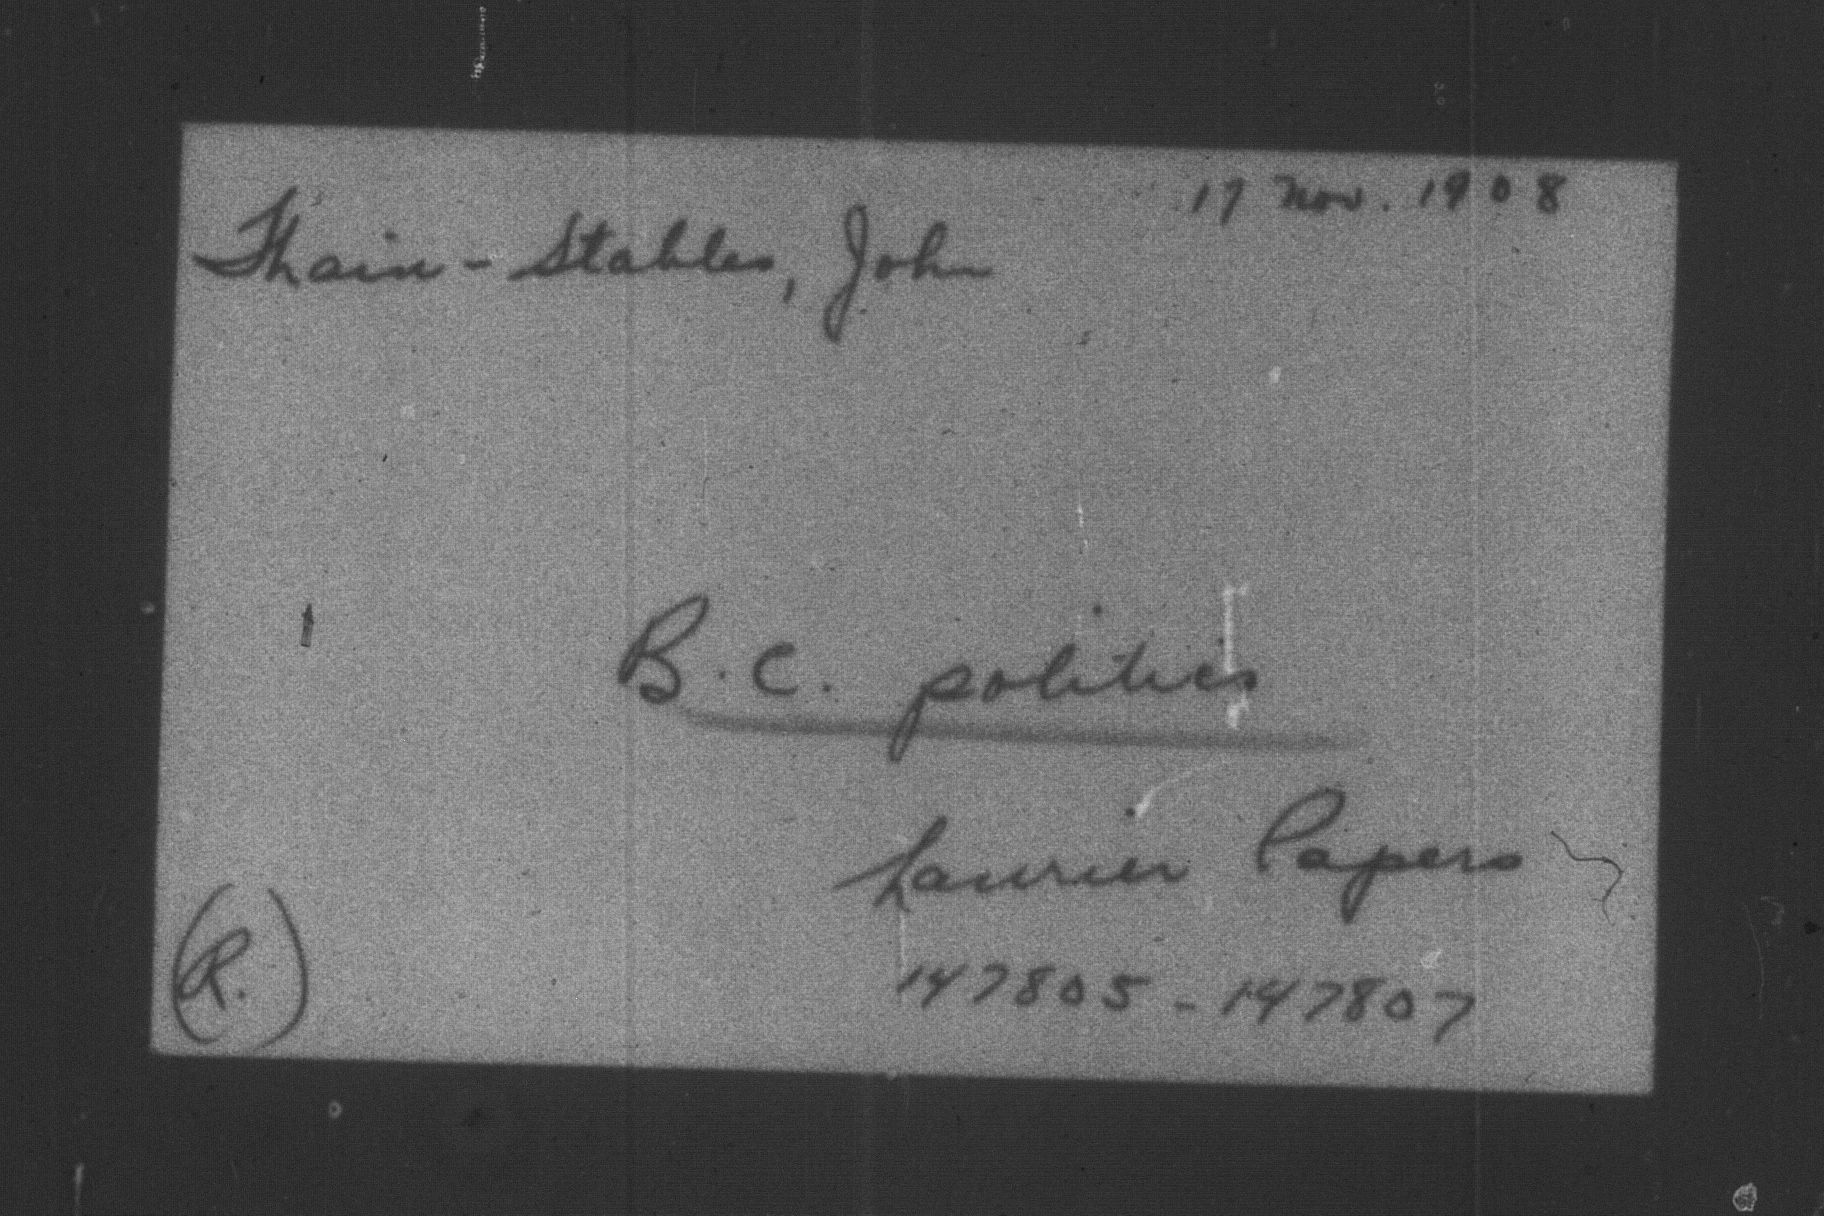 17 Nov. 1908
Thain-Stables, John
B.C. politics
Laurier Papers
147805-147807
(R.)